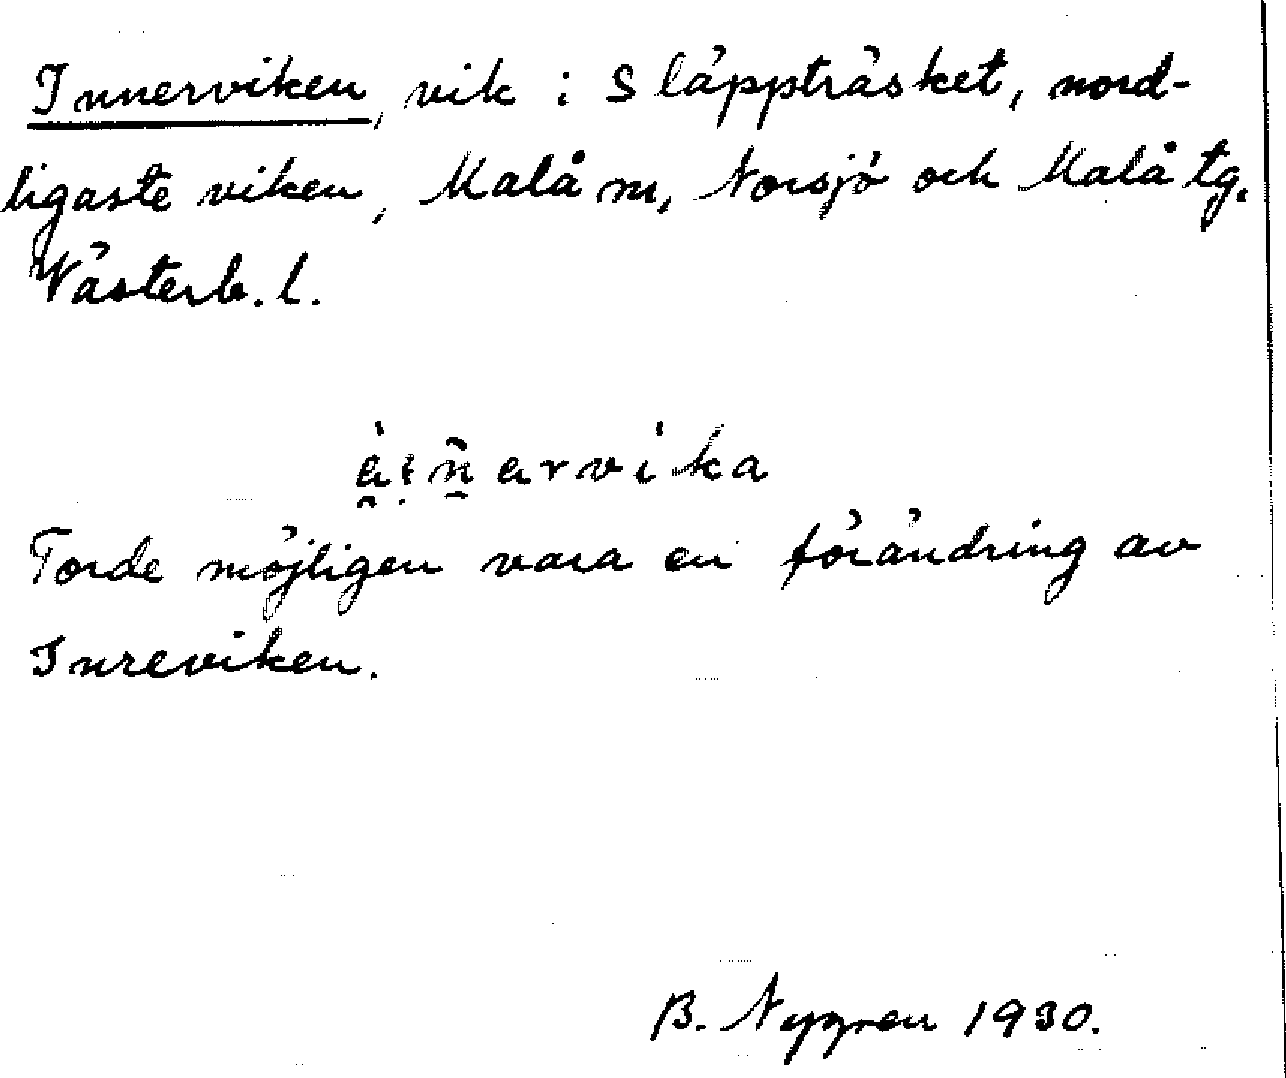 Innerviken, vik i Släppträsket, nord-
ligaste viken, Malå m, Norsjö och Malå tg.
Västerb. l.
arvika
Torde möjligen vara en förändring av
Inreviken.
B. Nygren 1930.